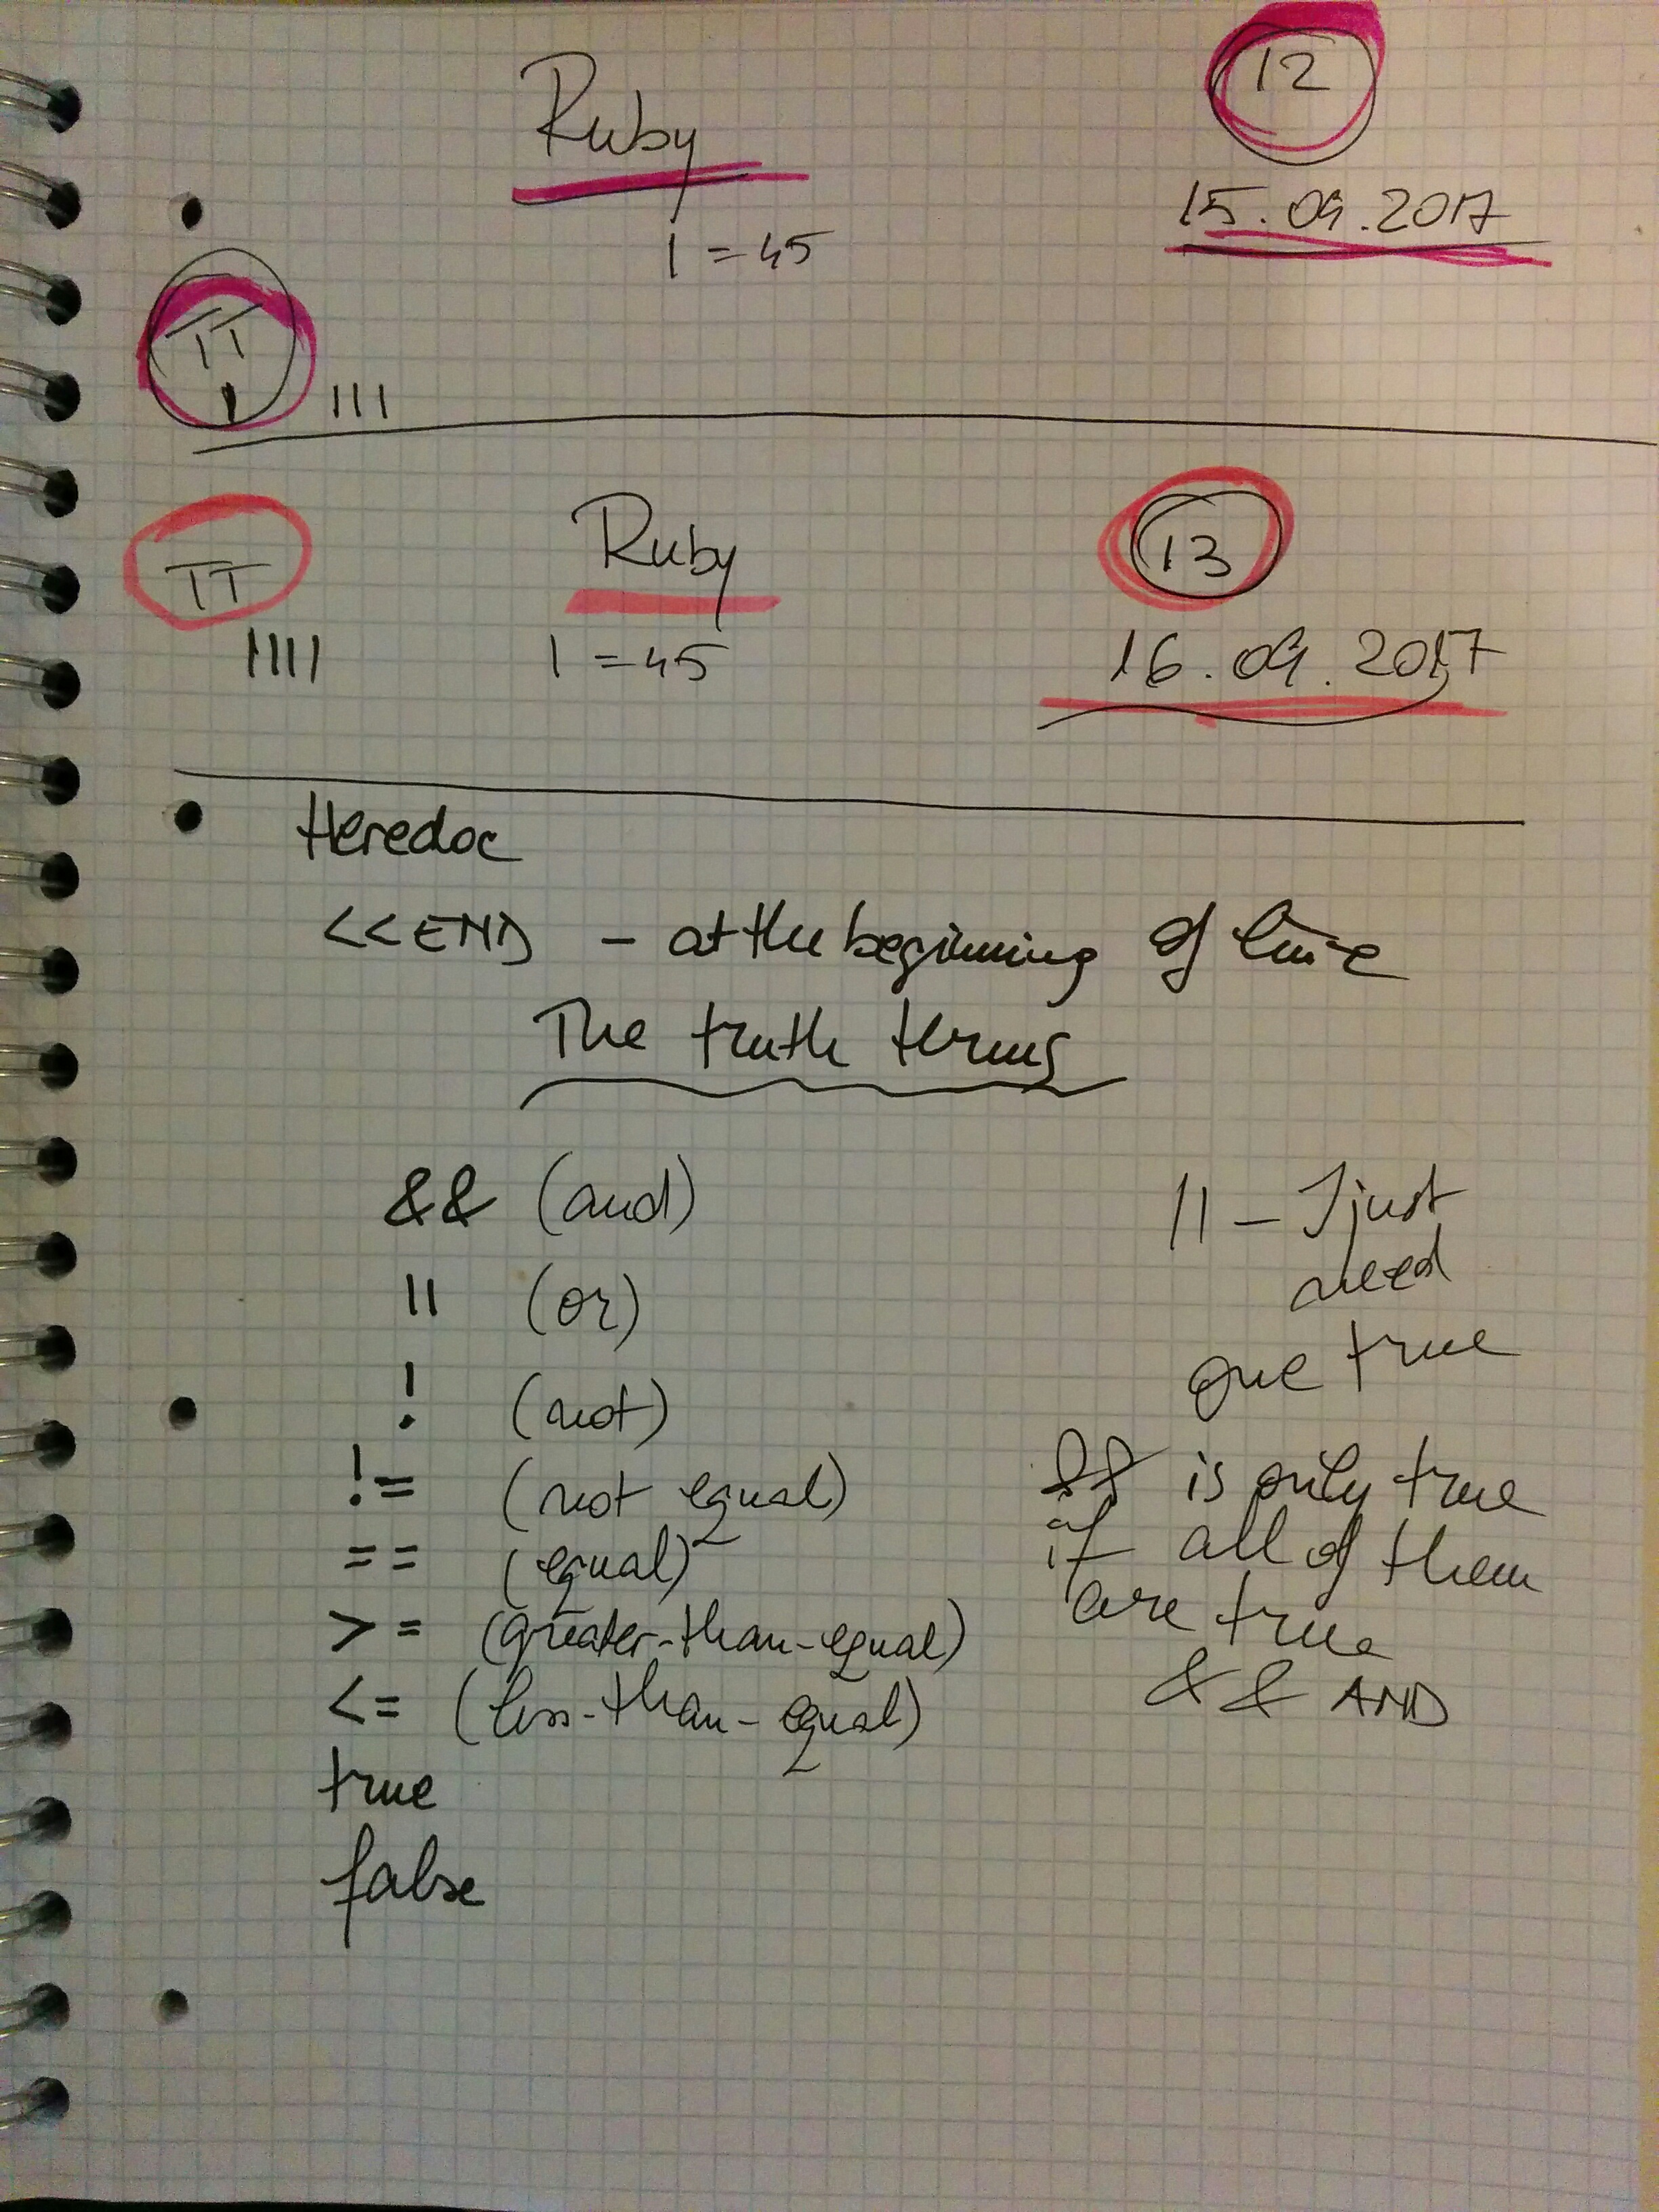 Ruby
12
15.09.2017
1 = 45
TT
1
III
TT
Ruby
13
IIII
1 = 45
16.09.2017
Heredoc
<<END - at the beginning of line
The truth terms
&& (and)
|| (or)
! (not)
!= (not equal)
== (equal)
>= (greater-than-equal)
<= (less-than-equal)
true
false
|| - I just
need
one true
&& is only true
if all of them
are true
&& AND